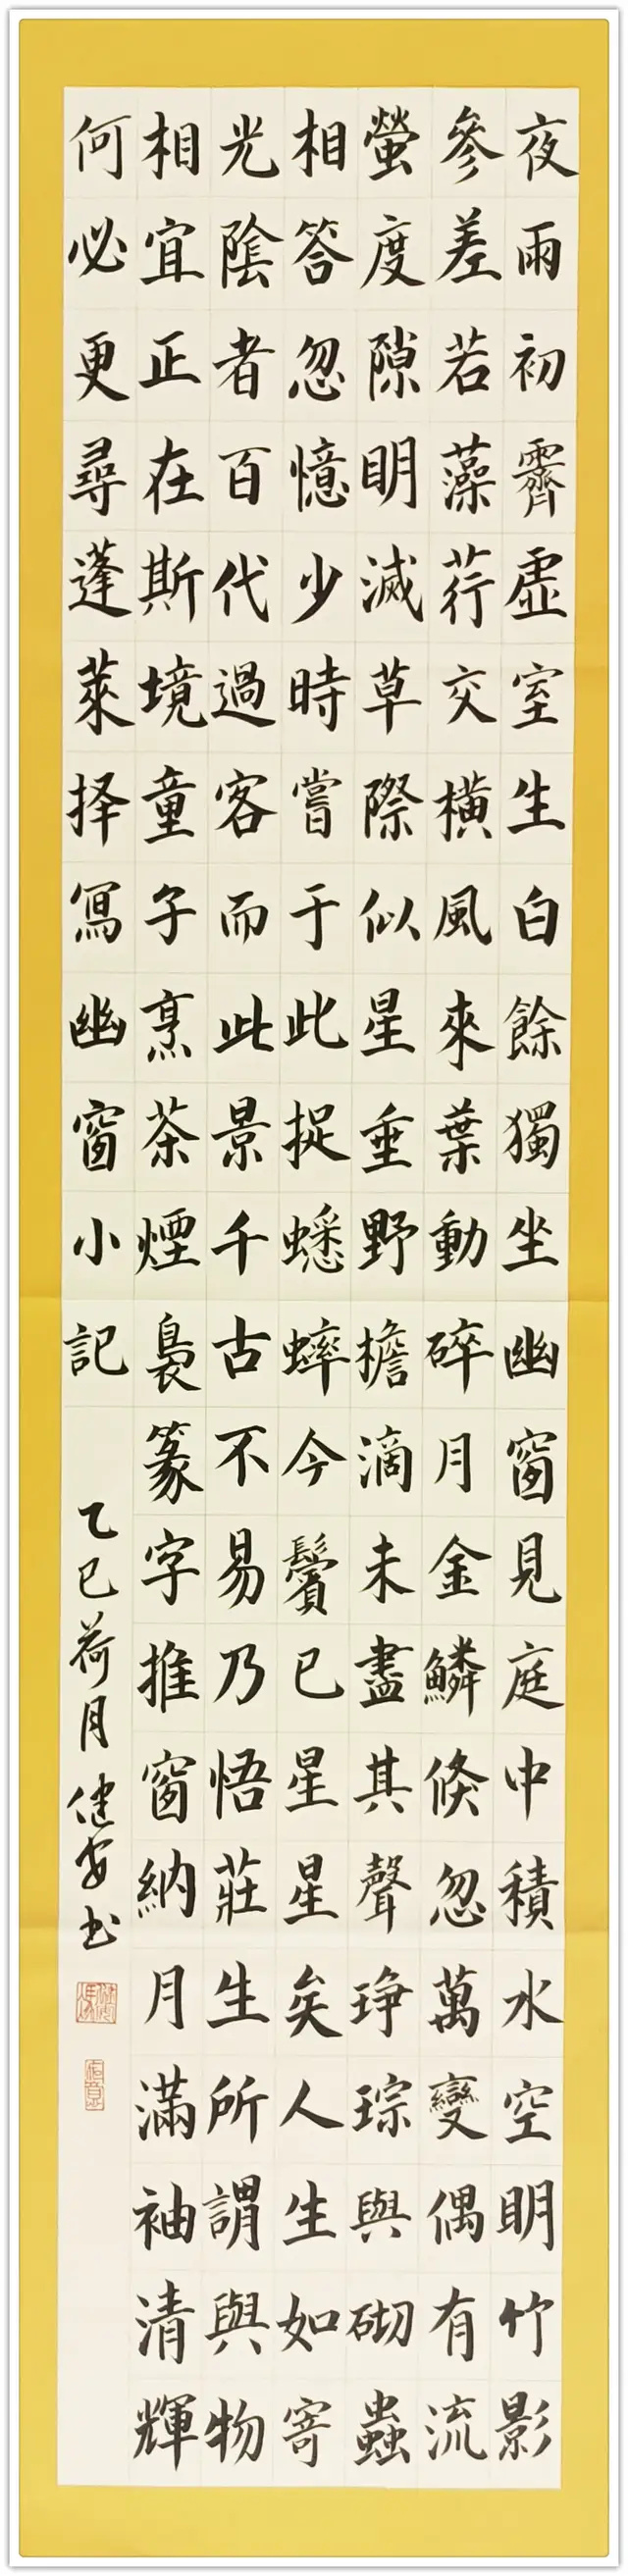 夜雨初霽虛室生白餘獨坐幽窗見庭中積水空明竹影
參差若藻荇交橫風來葉動碎月金鱗倏忽萬變偶有流
螢度隙明滅草際似星垂野檐滴未盡其聲琤琮與砌蟲
相答忽憶少時嘗于此捉蟋蟀今鬢已星星矣人生如寄
光陰者百代過客而此景千古不易乃悟莊生所謂與物
相宜正在斯境童子烹茶煙裊篆字推窗納月滿袖清輝
何必更尋蓬萊择寫幽窗小記
乙巳荷月健安书